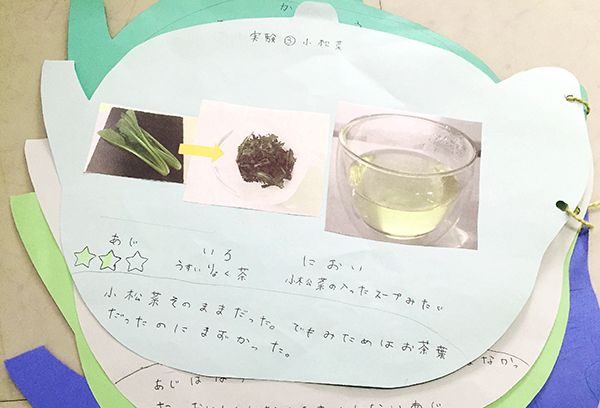 実験③小松菜
あじ
いろ
におい
うすいりょく茶
小松菜の入ったスープみたい
小松菜そのままだった。でもみためはお茶葉
だったのにまずかった。